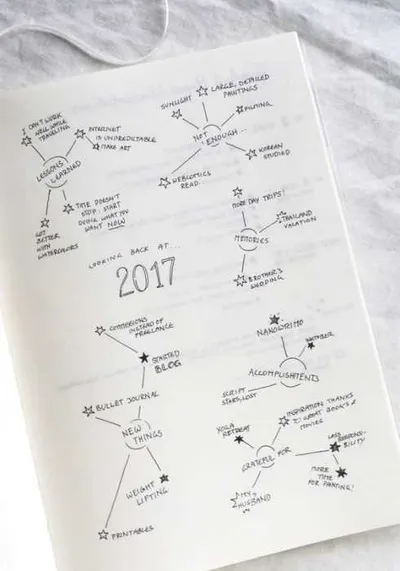 I CAN'T WORK
WELL WHILE
TRAVELING
INTERNET
IS UNPREDICTABLE
MAKE ART
LESSONS
LEARNED
TIME DOESN'T
STOP. START
DOING WHAT YOU
WANT NOW
GOT
BETTER
WITH
WATERCOLORS
SUNLIGHT
LARGE, DETAILED
PAINTINGS
NOT
ENOUGH...
KOREAN
STUDIED
WEBCOMICS
READ...
MORE DAY TRIPS!
THAILAND
VACATION
MEMORIES
BROTHER'S
WEDDING
LOOKING BACK AT...
2017
INSTEAD OF
FREELANCE
STARTED
BLOG
BULLET JOURNAL
NEW
THINGS
WEIGHT
LIFTING
PRINTABLES
NANOWRIMO
ACCOMPLISHMENTS
SCRIPT
INSPIRATION THANKS
TO GREAT BOOKS &
MOVIES
YOGA
RETREAT
LESS RESPONSI-
BILITY
GRATEFUL FOR
MORE
TIME
FOR PAINTING!
MY
HUSBAND